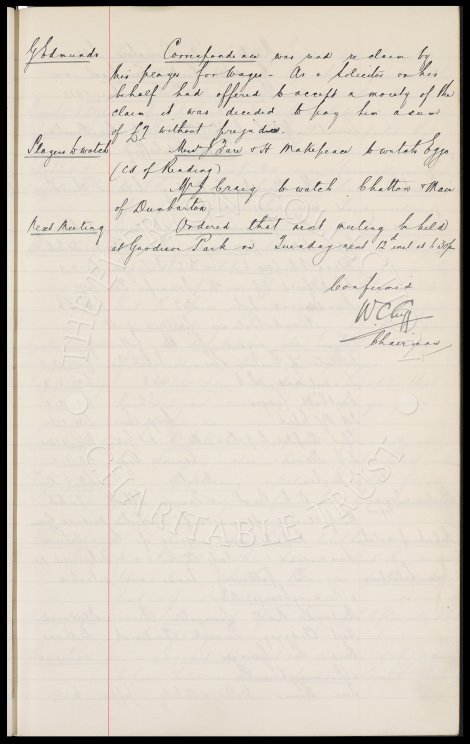 G Edmunds Correspondence was read re claim by
this player for wages - As a Solicitor on his
behalf had offered to accept a moiety of the
claim it was decided to pay him a sum
of £7 without prejudice.
Players to watch Messrs J Fare & H Makepeace to watch Eggo
(CS of Reading)
Mr J Craig to watch Chatton & Main
of Dunbarton
Next Meeting Ordered that next meeting be held
at Goodison Park on Tuesday next 12 inst at 6.30pm
Confirmed
W C Cuff
Chairman
THE EVERTON COLLECTION
CHARITABLE TRUST